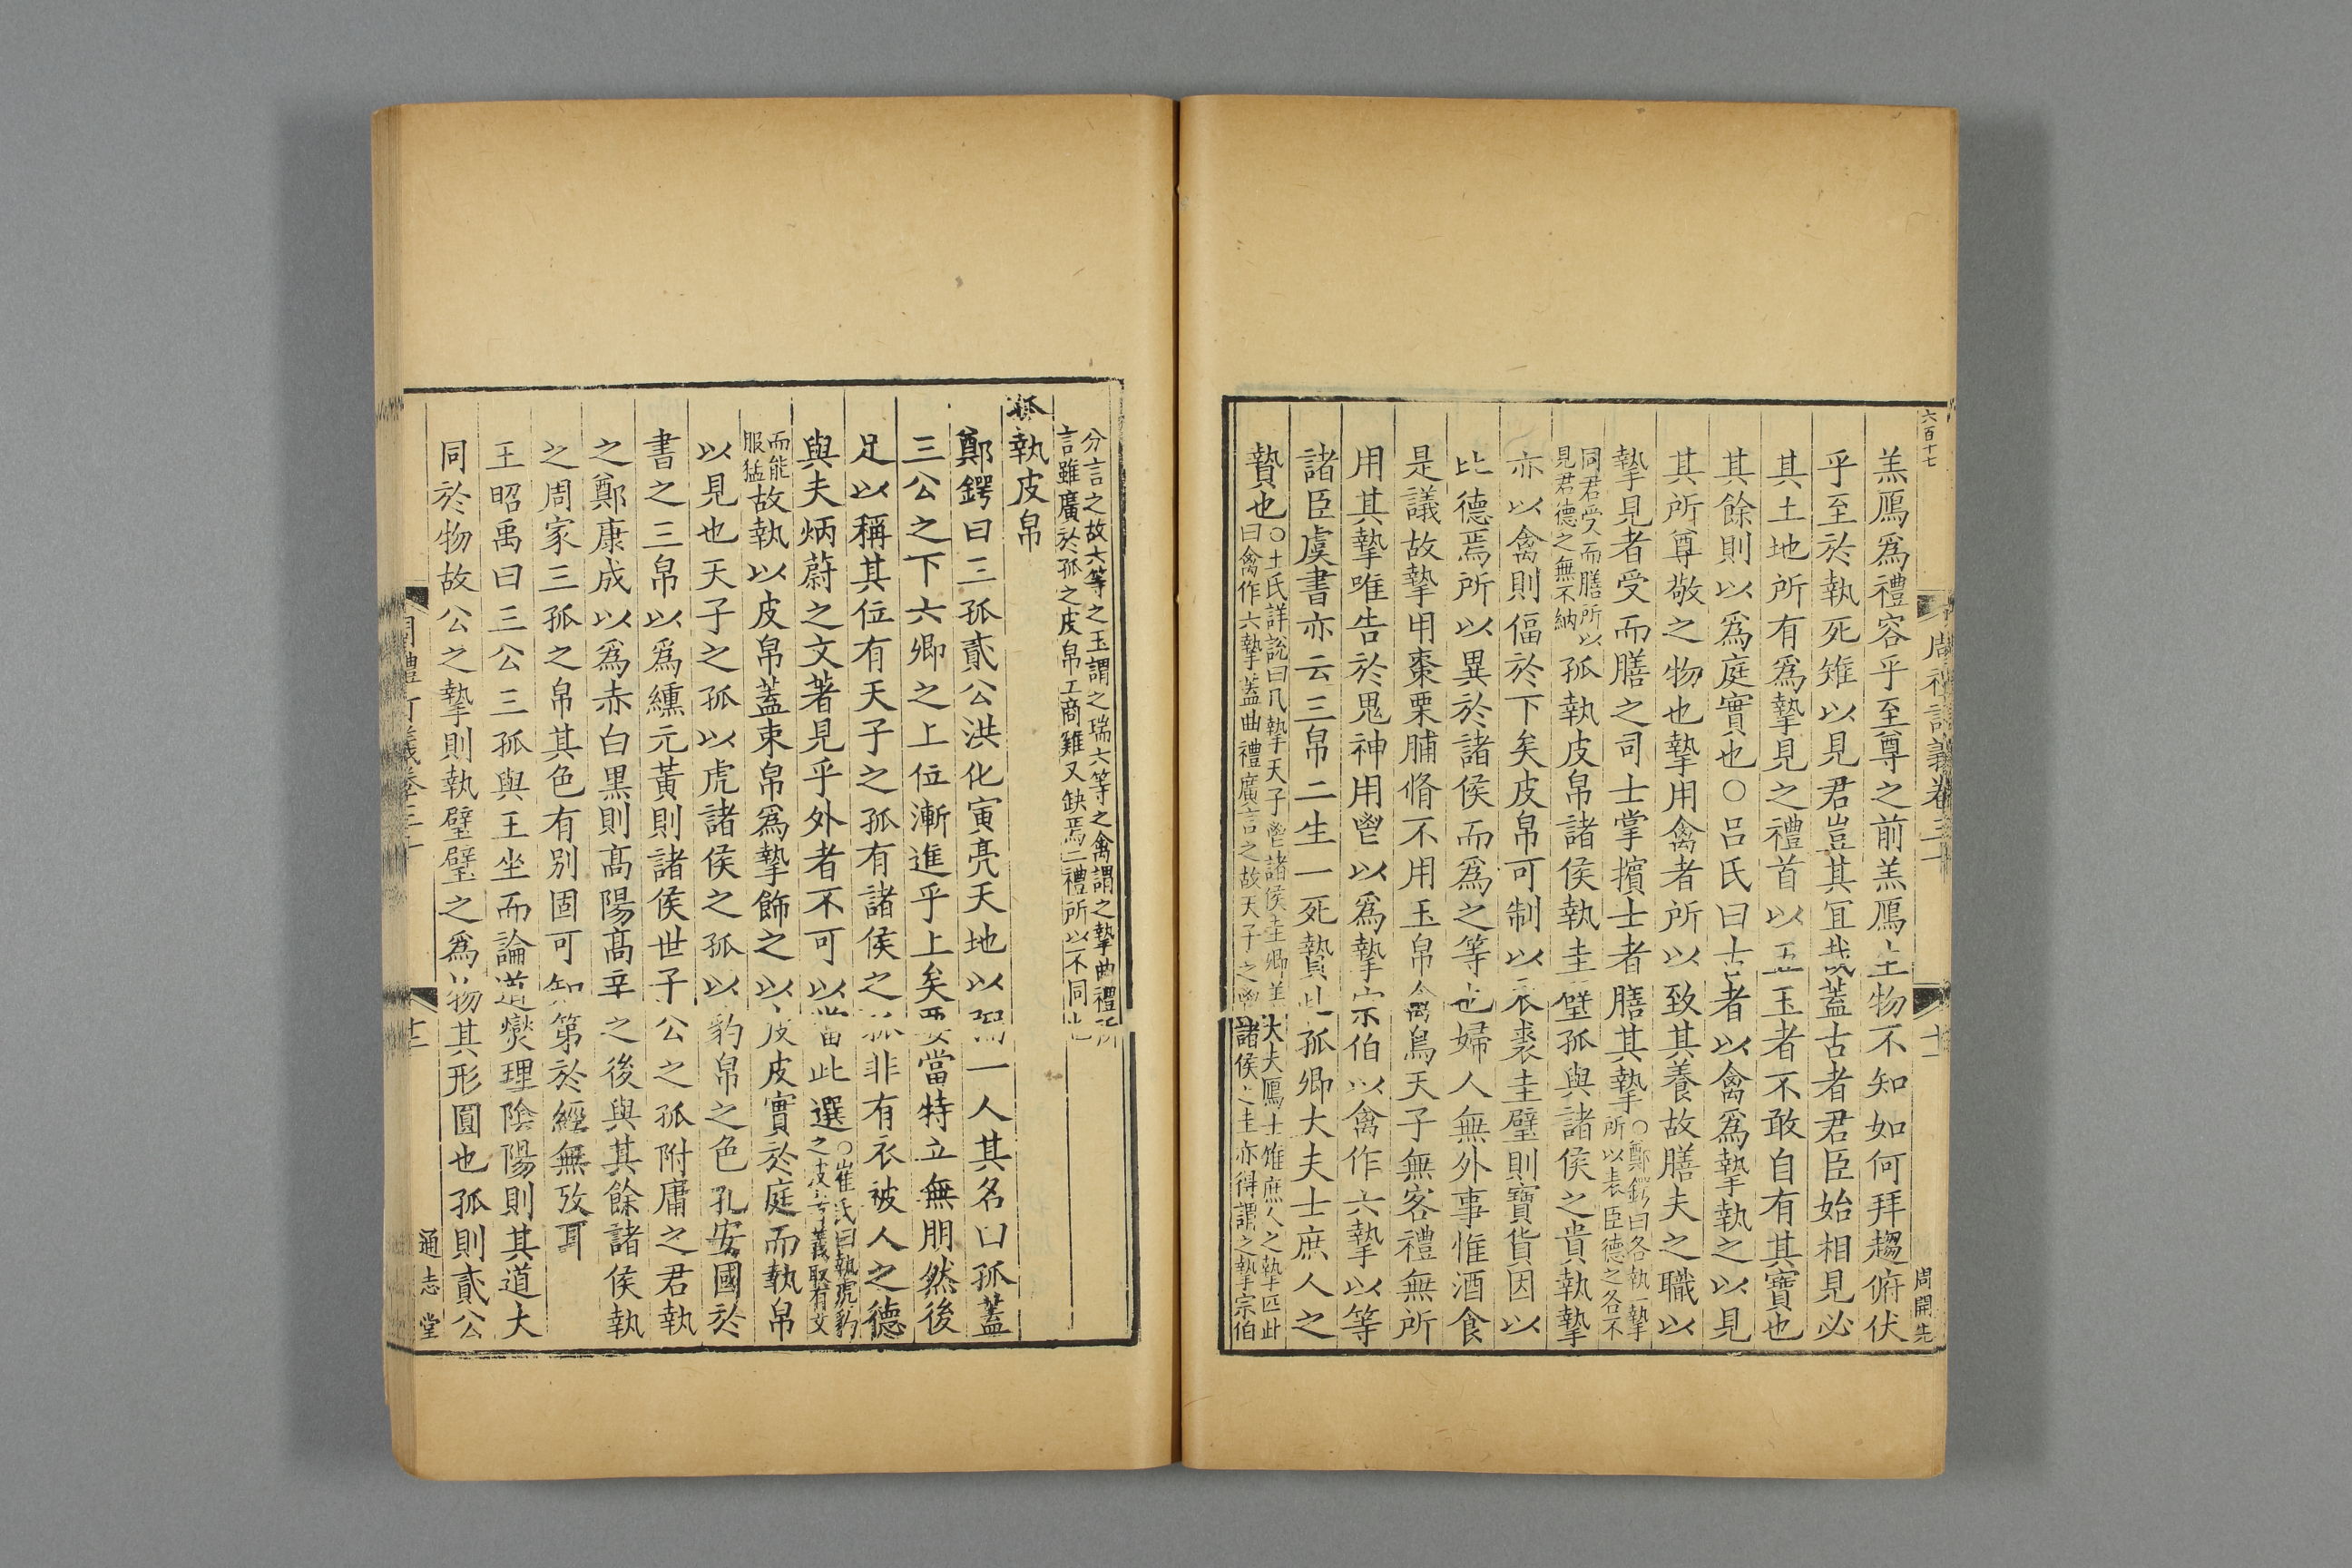 六百十七
周禮訂義卷三十
十一
周開先
羔鴈爲禮容乎至尊之前羔鴈生物不知如何拜趨俯伏
乎至於執死雉以見君豈其宜哉蓋古者君臣始相見必
其土地所有爲摯見之禮首以五玉者不敢自有其寶也
其餘則以爲庭實也○呂氏曰古者以禽爲摯執之以見
其所尊敬之物也摯用禽者所以致其養故膳夫之職以
摯見者受而膳之司士掌擯士者膳其摯○鄭鍔曰各執一摯
所以表臣德之各不
同君受而膳所以
見君德之無不納孤執皮帛諸侯執圭璧孤與諸侯之貴執摯
亦以禽則偪於下矣皮帛可制以衣裘圭璧則寶貨因以
比德焉所以異於諸侯而爲之等也婦人無外事惟酒食
是議故摯用棗栗脯脩不用玉帛禽鳥天子無客禮無所
用其摯唯告於鬼神用鬯以爲摯宗伯以禽作六摯以等
諸臣虞書亦云三帛二生一死贄此孤卿大夫士庶人之
贄也○王氏詳說曰凡摯天子鬯諸侯圭卿羔大夫鴈士雉庶人之摯匹此
曰禽作六摯蓋曲禮廣言之故天子之鬯諸侯之圭亦得謂之摯宗伯
分言之故六等之玉謂之瑞六等之禽謂之摯曲禮所
言雖廣於孤之皮帛工商雞又缺焉二禮所以不同也
孤執皮帛
鄭鍔曰三孤貳公洪化寅亮天地以弼一人其名曰孤蓋
三公之下六卿之上位漸進乎上矣要當特立無朋然後
足以稱其位有天子之孤有諸侯之孤非有衣被人之德
與夫炳蔚之文著見乎外者不可以當此選○崔氏曰執虎豹
之皮者義取有文
而能
服猛故執以皮帛蓋束帛爲摯飾之以皮皮實於庭而執帛
以見也天子之孤以虎諸侯之孤以豹帛之色孔安國於
書之三帛以爲纁元黃則諸侯世子公之孤附庸之君執
之鄭康成以爲赤白黑則高陽高辛之後與其餘諸侯執
之周家三孤之帛其色有別固可知第於經無攷耳
王昭禹曰三公三孤與王坐而論道燮理陰陽則其道大
同於物故公之摯則執璧璧之爲物其形圓也孤則貳公
周禮訂義卷三十
十二
通志堂